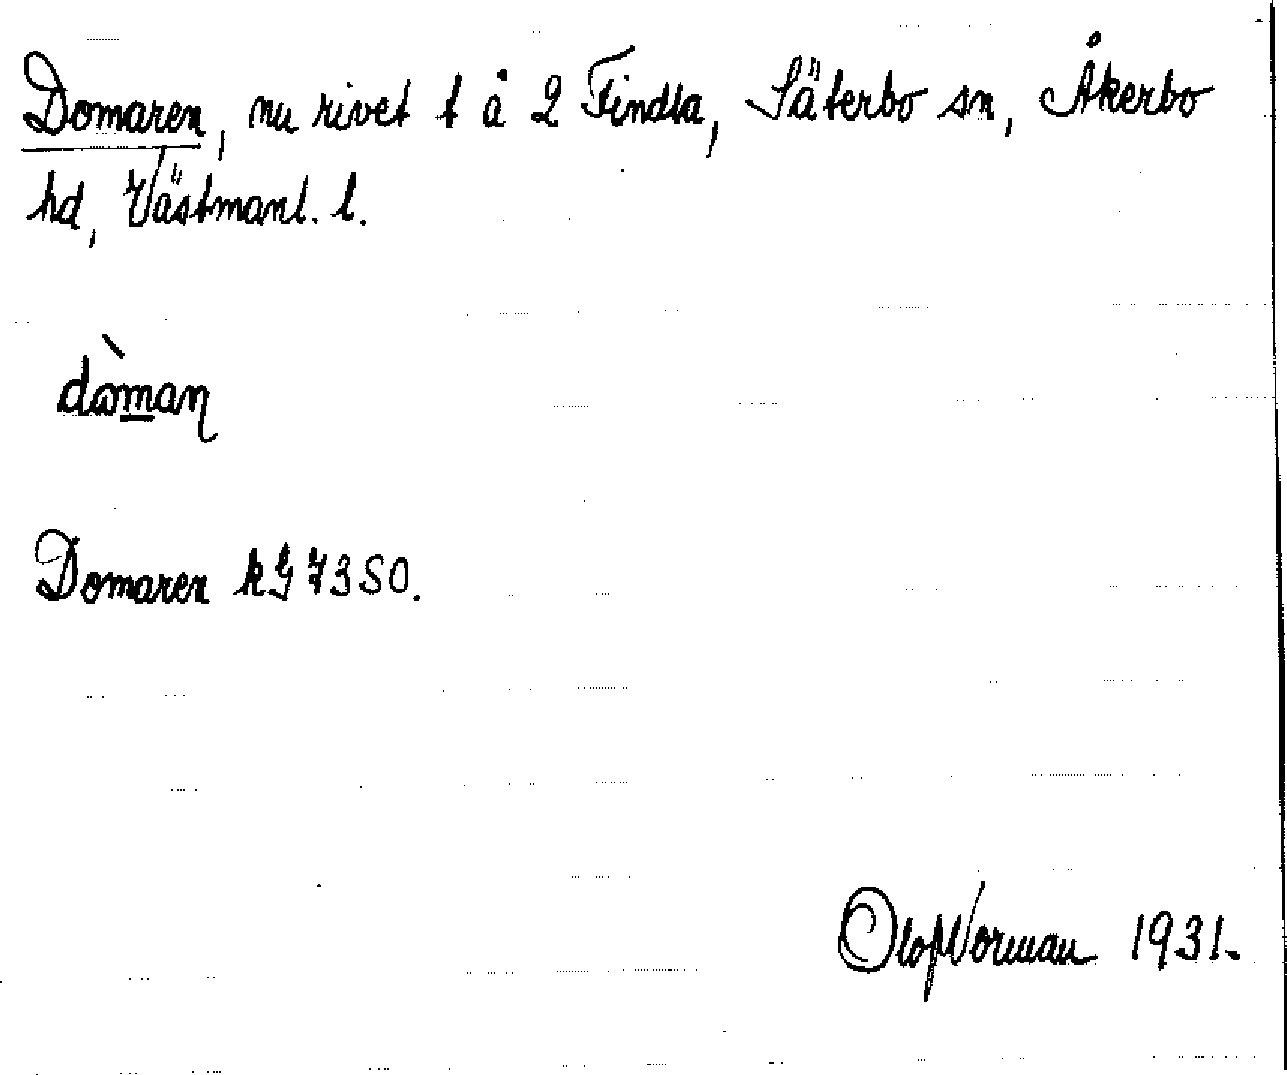 Domaren, nu rivet t å 2 Findla, Säterbo sn, Åkerbo
hd, Västmanl. l.
dɷ̀man
Domaren kG 73SO.
Olof Norman 1931.